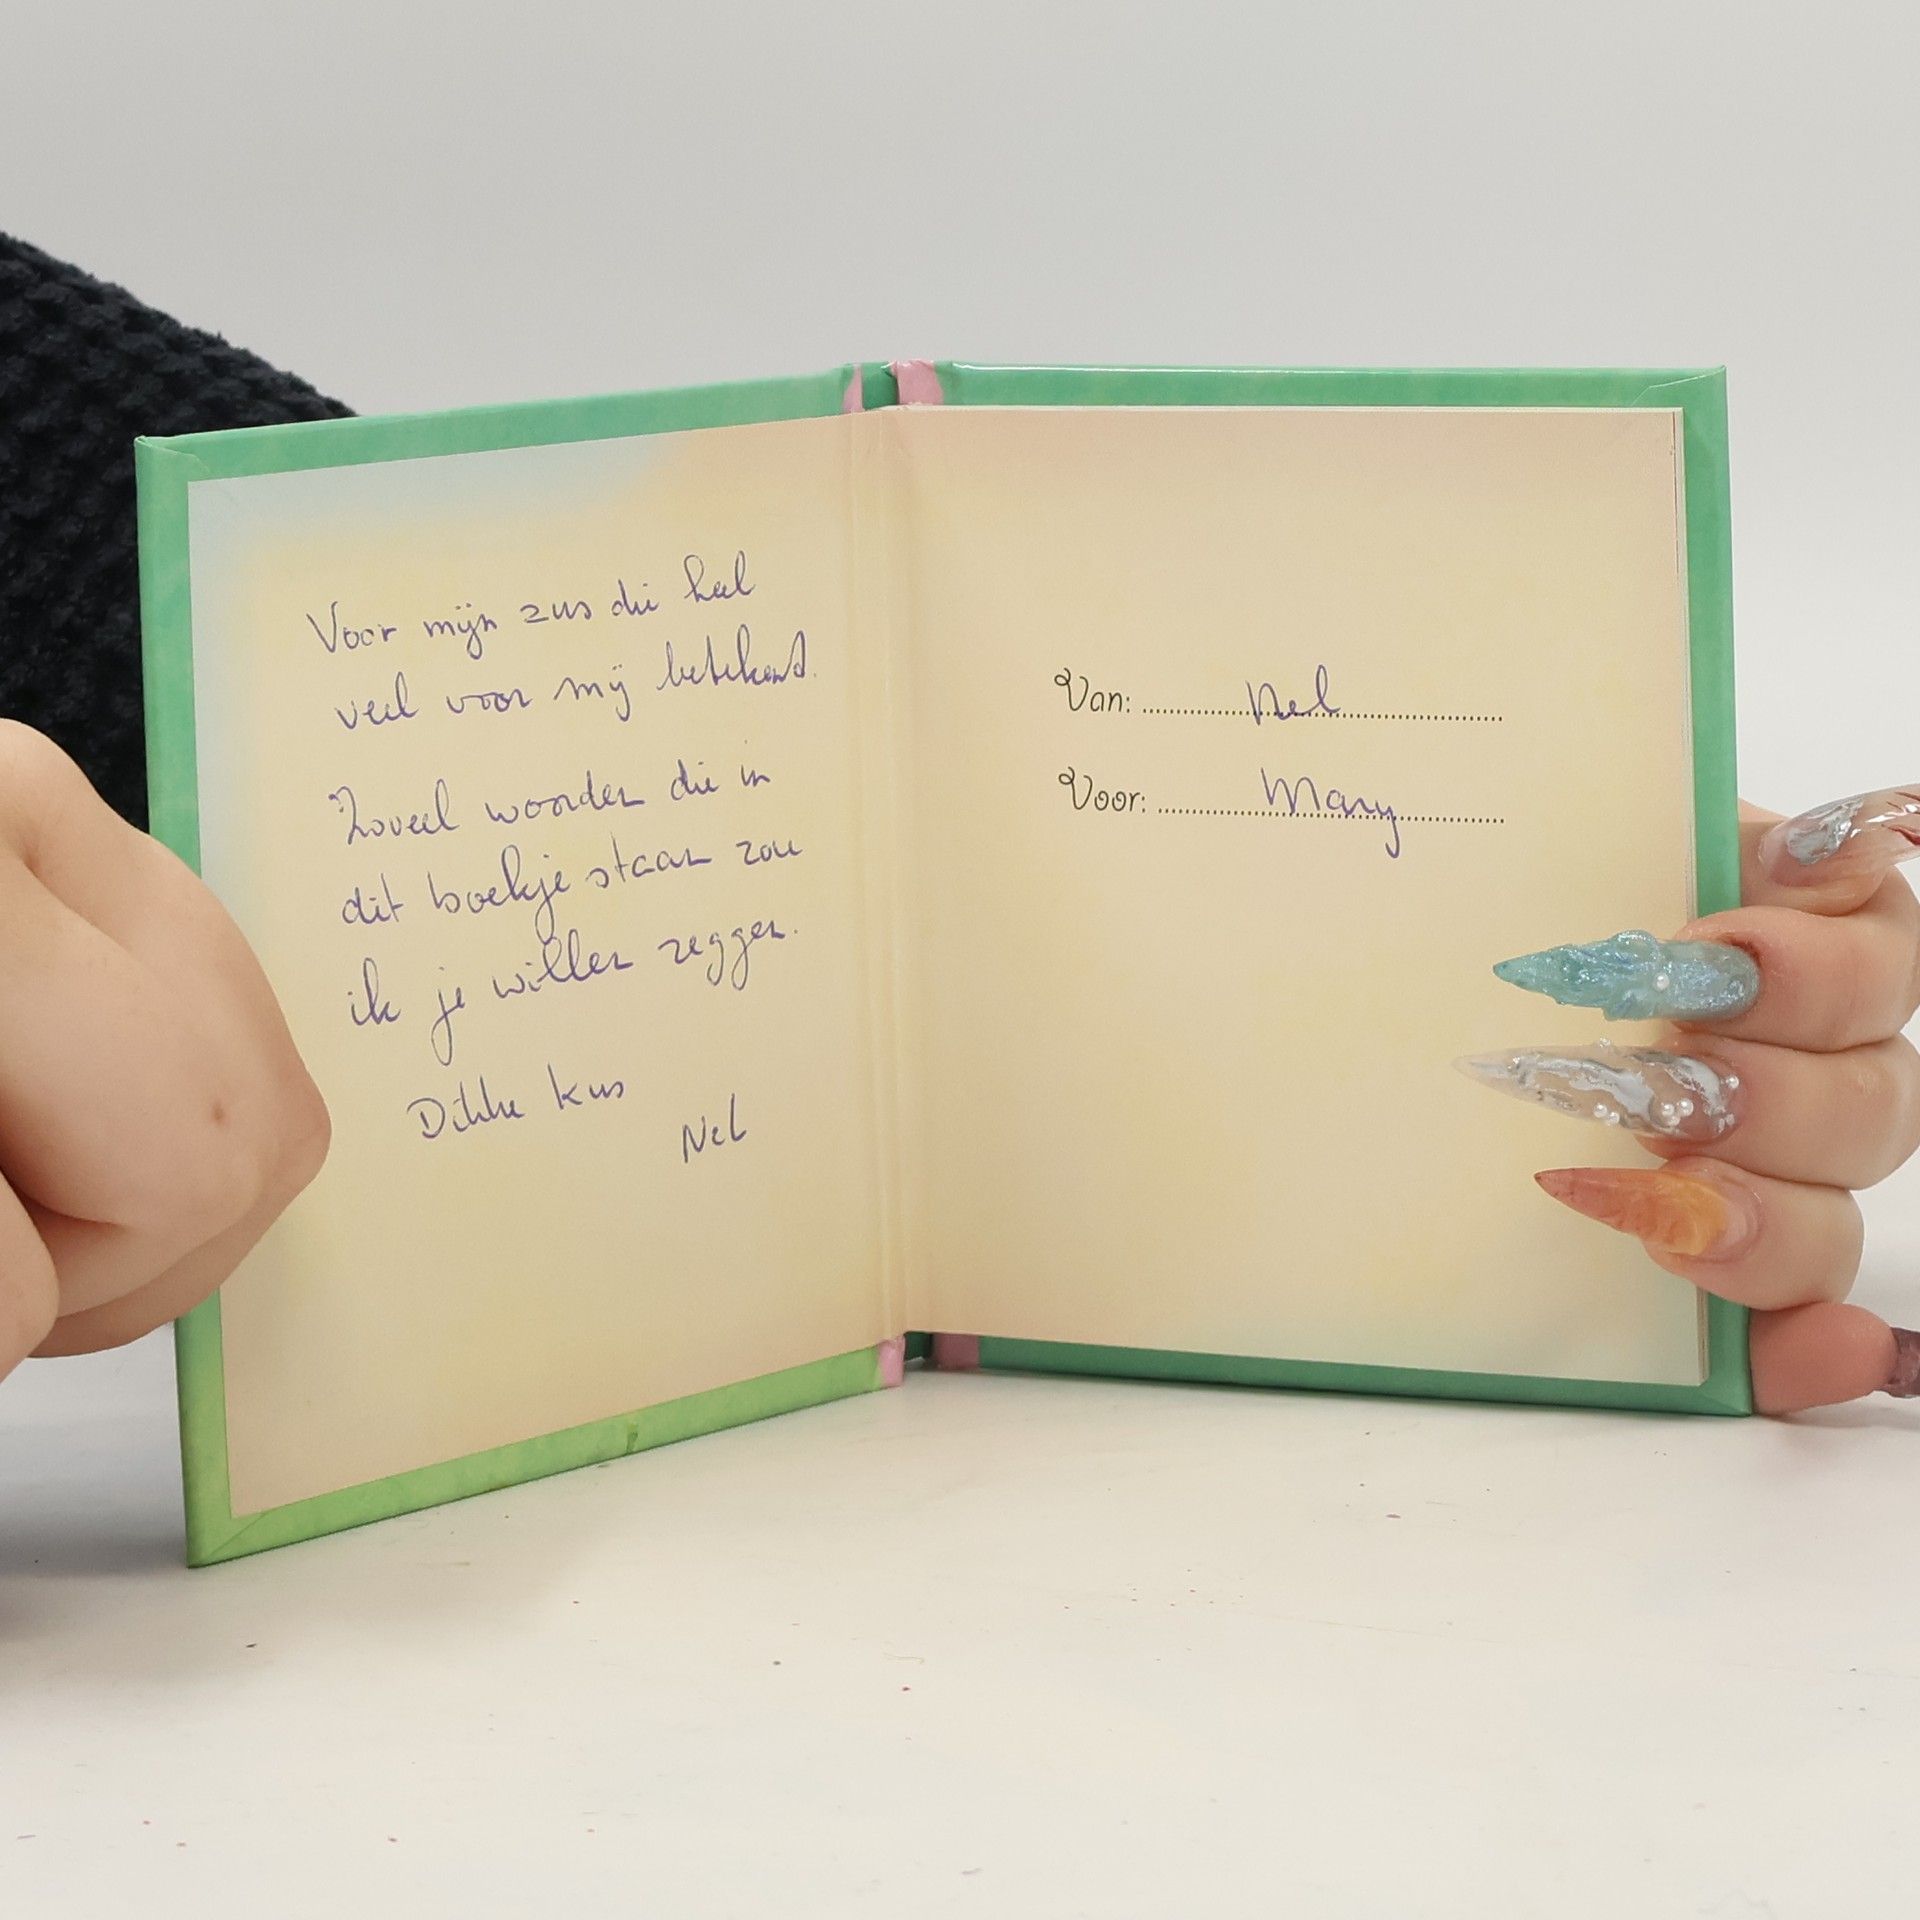 Voor mijn zus die heel
veel voor mij betekend.
Zoveel woorden die in
dit boekje staan zou
ik je willen zeggen.
Dikke kus
Nel
Van: Nel
Voor: Mary